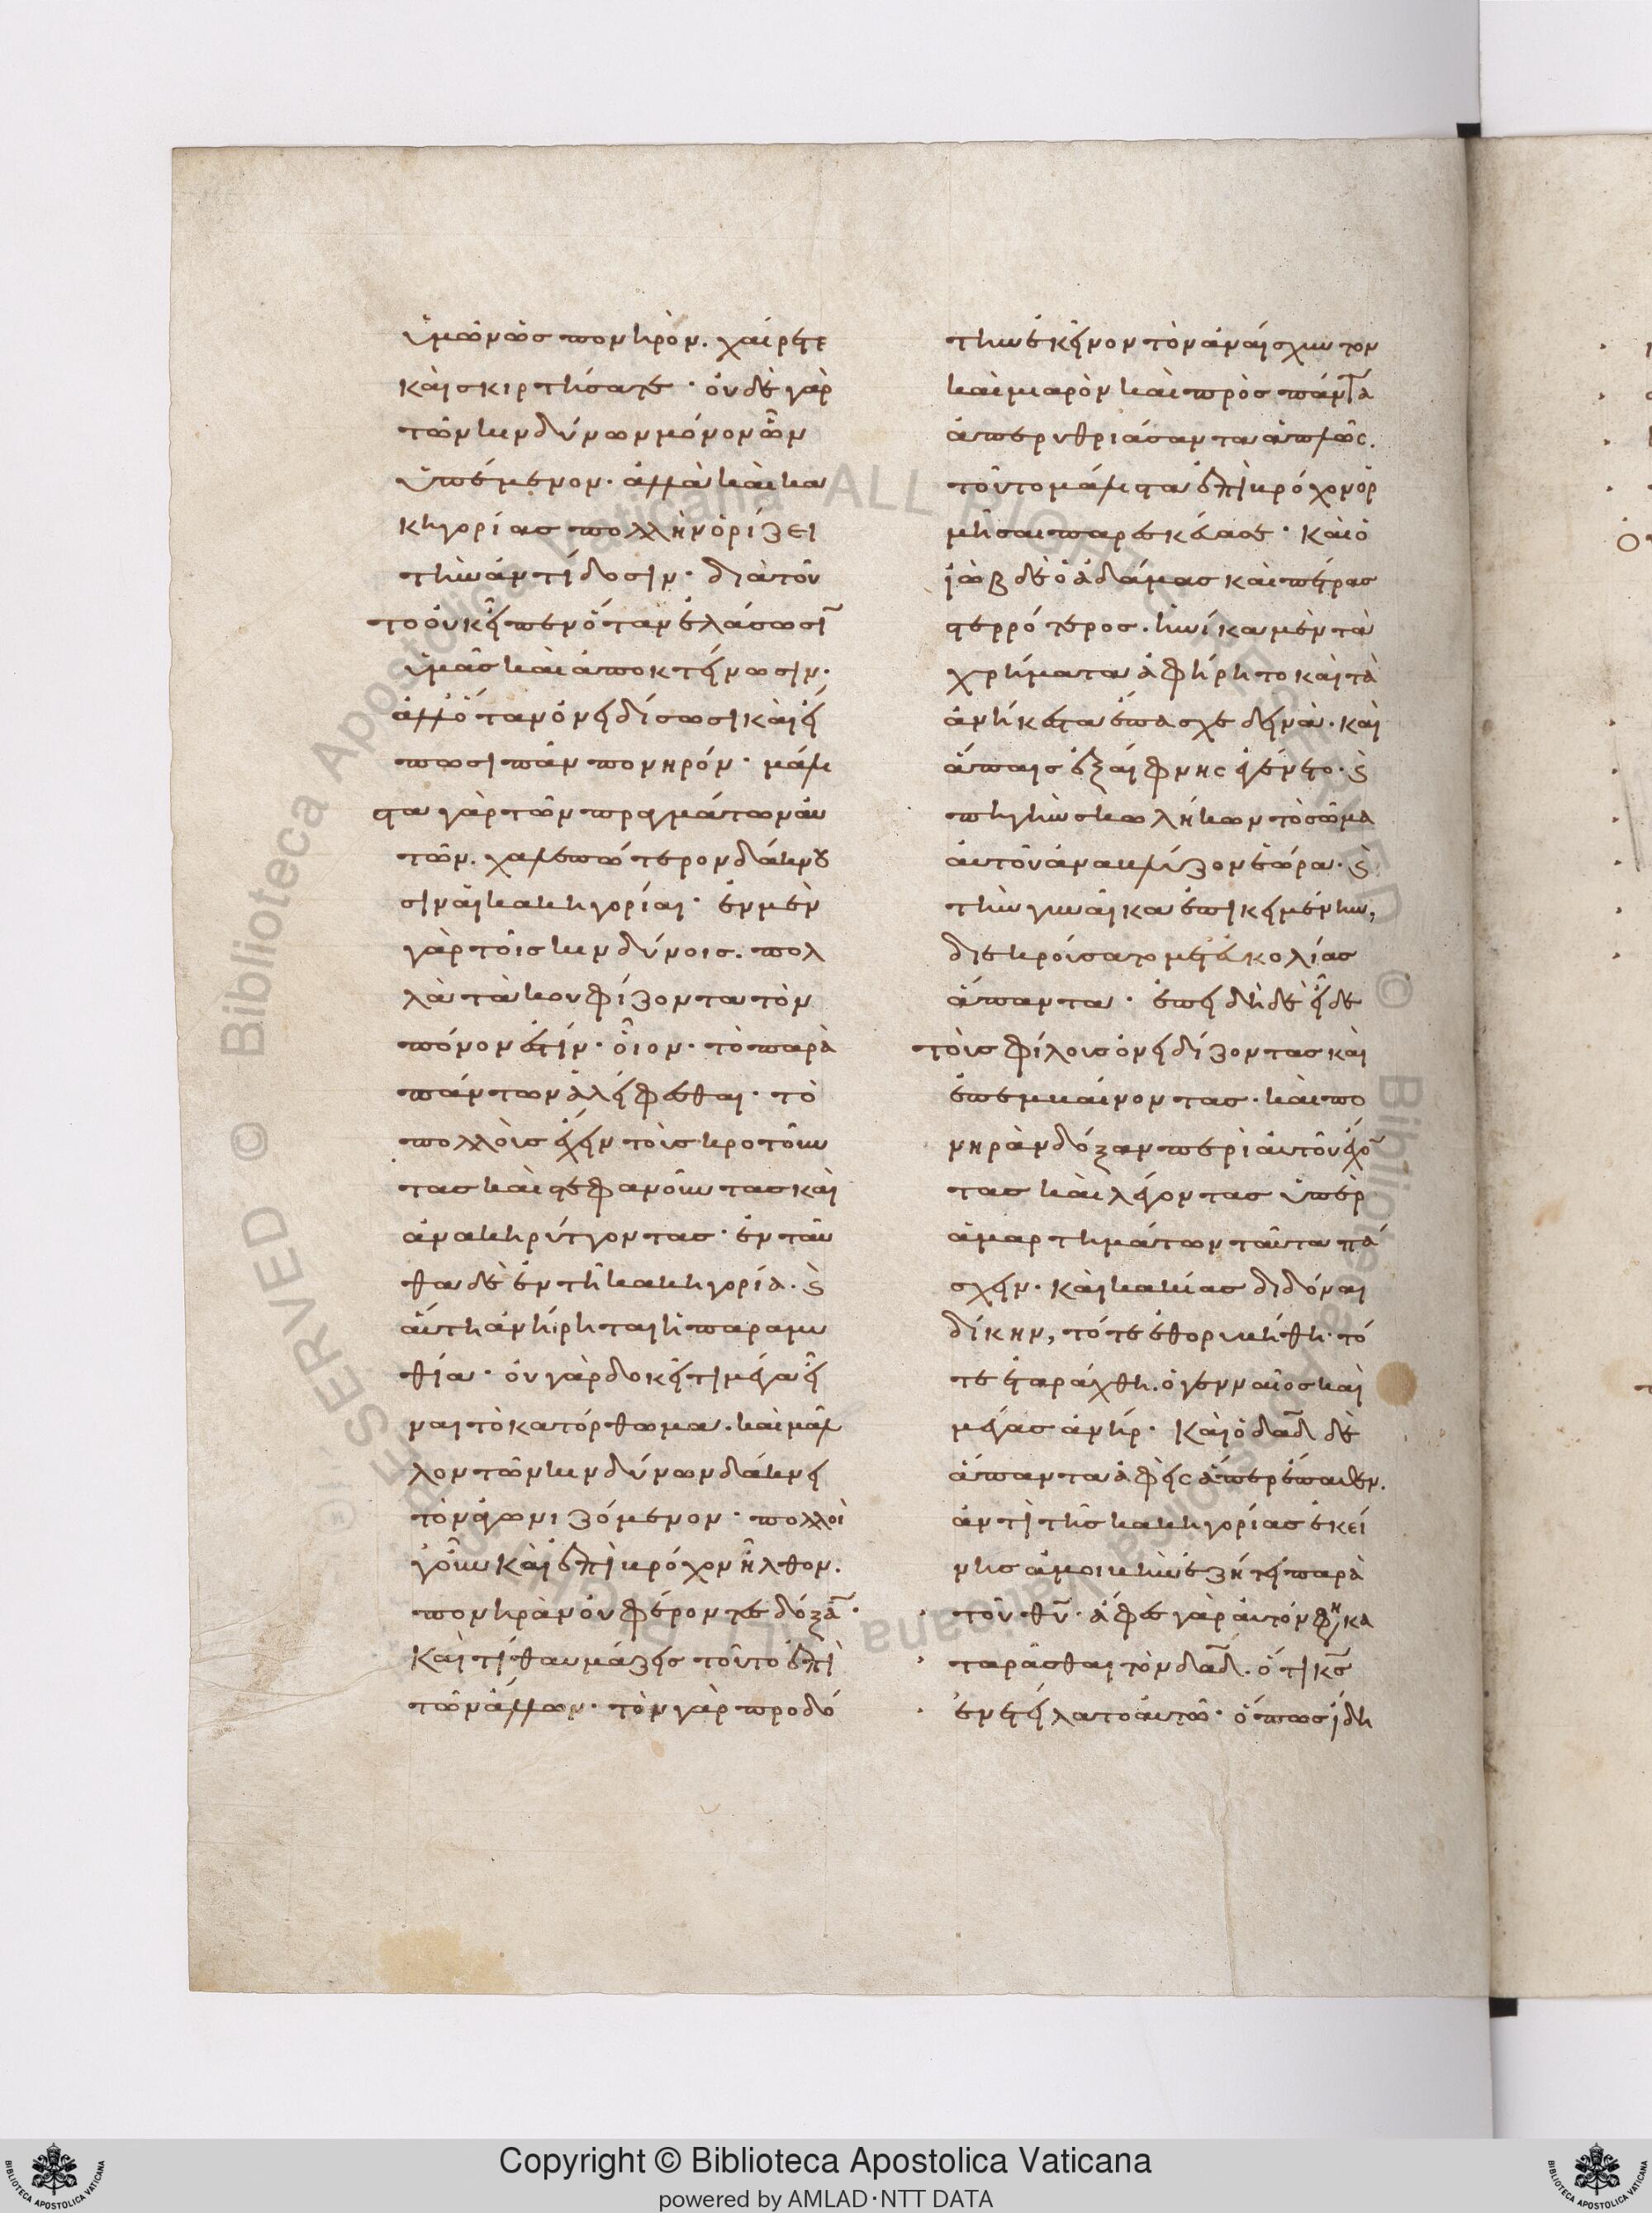 ὑμῶν ὡς πονηρόν. χαίρετε
καὶ σκιρτήσατε · οὐδὲ γὰρ
τῶν κινδύνων μόνον ὧν
ὑπέμενον · ἀλλὰ καὶ κα
κηγορίας πολλὴν ὁρίζει
τὴν ἀντίδοσιν · διὰ τοῦ
το οὐκ εἶπεν ὅταν ἐλάσωσῖ
ὑμᾶς καὶ ἀποκτείνωσιν ·
ἀλλ' ὅταν ὀνειδίσωσι καὶ εἴ
πωσι πᾶν πονηρόν · μάλι
στα γὰρ τῶν πραγμάτων αὐ
τῶν. χαλεπώτερον δάκνου
σιν αἱ κακηγορίαι · ἐν μὲν
γὰρ τοῖς κινδύνοις. πολ
λὰ τὰ κουφίζοντα τὸν
πόνον ἐστίν · οἷον · τὸ παρὰ
πάντων ἀλείφεσθαι · τὸ
πολλοὺς ἔχειν τοὺς κροτοῦν
τας καὶ στεφανοῦντας καὶ
ἀνακηρύττοντας · ἐνταῦ
θα δὲ ἐν τῆ κακηγορία · ϛ̀
αὕτη ἀνήρηται ἡ παραμυ
θία · οὐ γὰρ δοκεῖ τι μέγα εἶ
ναι τὸ κατόρθωμα. καὶ μᾶλ
λον τῶν κινδύνων δάκνει
τὸν ἀγωνιζόμενον · πολλοὶ
γοῦν καὶ ἐπὶ βρόχον ἦλθον.
πονηρὰν οὐ φέροντες δόξᾱ ·
Καὶ τί θαυμάζεις τοῦτο ἐπὶ
τῶν ἄλλων · τὸν γὰρ προδό
την ἐκεῖνον τὸν ἀναίσχυντον
καὶ μιαρὸν καὶ πρὸς πάντα
ἀπερυθριάσαντα ἁπλῶς.
τοῦτο μάλιστα ἐπὶ βρόχον ὁρ
μῆσαι παρεσκεύασε · Καὶ ὁ
ἰὼβ δὲ ὁ ἀδάμας καὶ πέτρας
στερρότερος. ἡνίκα μὲν τὰ
χρήματα ἀφήρητο καὶ τὰ
ἀνήκεστα ἔπασχε δεινά · καὶ
ἄπαις ἐξαίφνης ἐγένετο · ϛ̀
πηγὴν σκωλήκων τὸ σῶμα
αὐτοῦ ἀναβλύζον ἑώρα · ϛ̀
τὴν γυναῖκα ἐπικειμένην,
διεκρούσατο μετ' εὐκολίας
ἅπαντα · ἐπειδὴ δὲ εἶδε
τοὺς φίλους ὀνειδίζοντας καὶ
ἐπεμβαίνοντας · καὶ πο
νηρὰν δόξαν περὶ αὐτοῦ ἔχο̄
τας καὶ λέγοντας ὑπὲρ
ἁμαρτημάτων ταῦτα πά
σχειν · καὶ κακίας διδόναι
δίκην, τότε ἐθορυβήθη · τό
τε ἐταράχθη. ὁ γενναῖος καὶ
μέγας ἀνήρ · Καὶ ὁ δᾱδ δὲ
ἅπαντα ἀφεὶς ἅπερ ἔπαθεν.
ἀντὶ τῆς κακηγορίας ἐκεί
νης ἀμοιβὴν ἐζήτει παρὰ
τοῦ θῡ · ἄφες γὰρ αὐτόν φη κα
ταρᾶσθαι τὸν δᾱδ. ὅτι κ̄ς
ἐνετείλατο αὐτῶ · ὅπως ἴδη